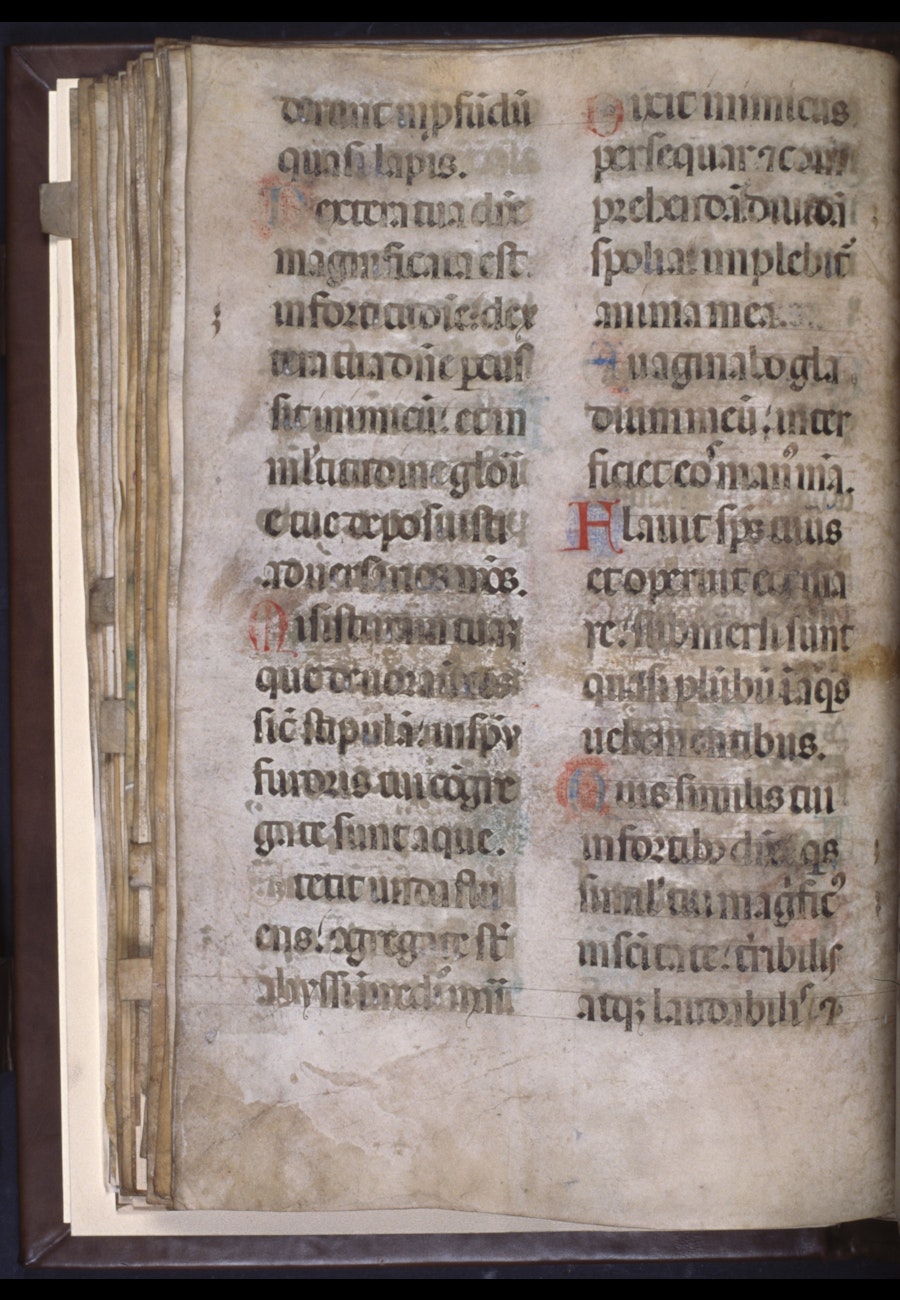 derunt in ꝓfūdū
quasi lapis.
Dextera tua dn̄e
magnificata est
in fortitudīe: dex
tera tua dn̄e ꝑcus
sit inimicū: et in
ml̓titudine glorī
e tue deposuisti
aduersarios m̄os.
Misisti iram tuaꝫ
que deuorauit eos
sic̄ stipulā: in sp̄u
furoris tui cōgre
gate sunt aque.
Stetit unda flu
ens: ↄgregate st̄
abyssi in medio mr̄i
Dixit inimicus
persequar ⁊ com
prehendā: diuidā
spolia: implebit̄
anima mea.
Euaginabo gla
dium meū: inter
ficiet eos man᷒ mā.
Flauit sp̄s tuus
et operuit eos ma
re: submersi sunt
quasi plūbū ī aq̄s
uehementibus.
Quis similis tui
in fortibꝫ dn̄e: q̄s
simil̓ tui magn̄fic᷒
in sc̄itate: t̄ribilis
atqꝫ laudabilis ⁊